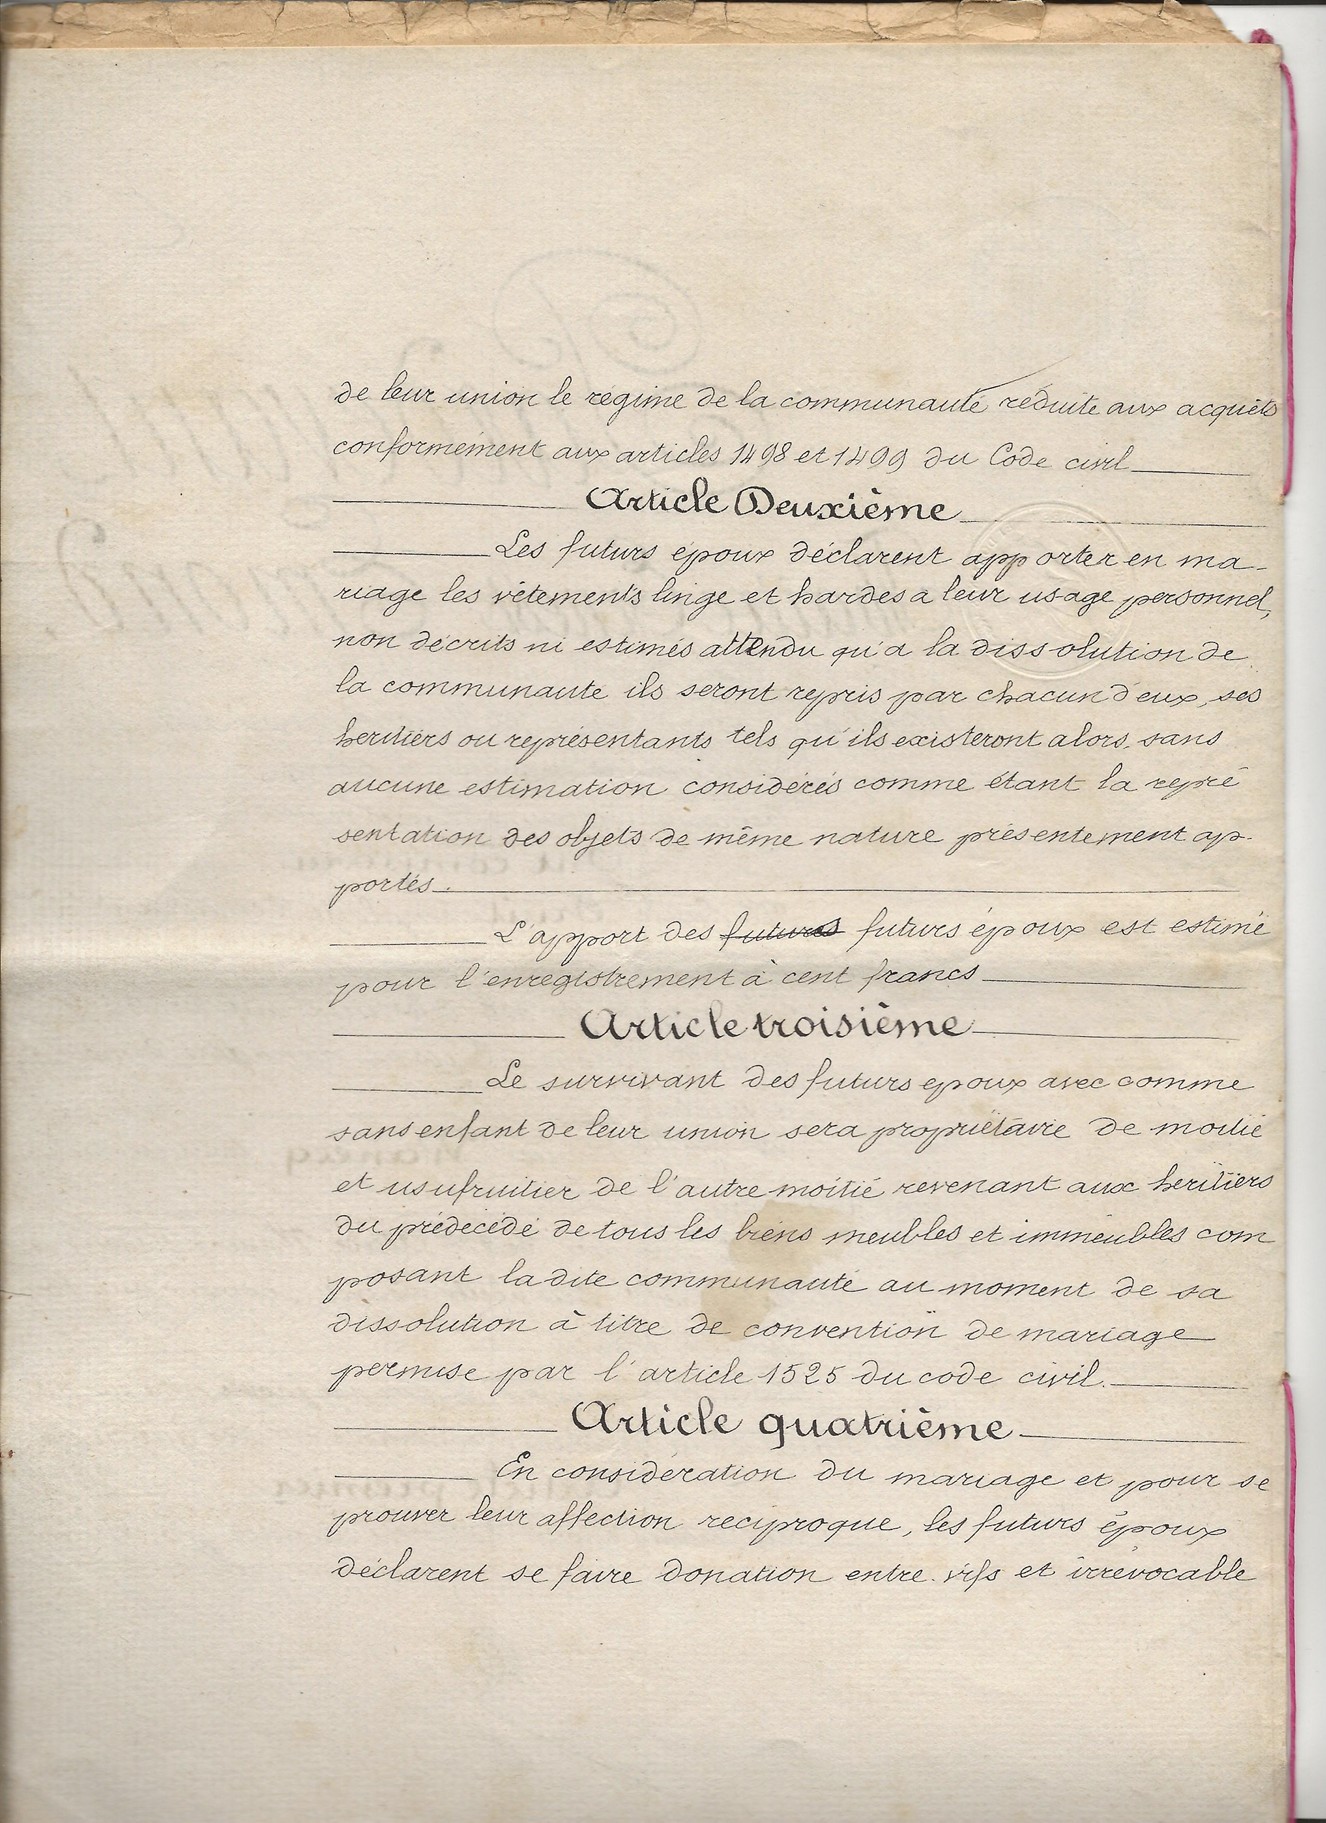 de leur union le régime de la communauté réduite aux acquêts
conformément aux articles 1498 et 1499 du Code civil
Article Deuxième
Les futurs époux déclarent apporter en ma-
riage les vêtements linge et hardes à leur usage personnel,
non décrits ni estimés attendu qu'à la dissolution de
la communauté ils seront repris par chacun d'eux, ses
héritiers ou représentants tels qu'ils existeront alors, sans
aucune estimation considérés comme étant la repré
sentation des objets de même nature présentement ap-
portés.
L'apport des futurs futurs époux est estimé
pour l'enregistrement à cent francs
Article troisième
Le survivant des futurs époux avec comme
sans enfant de leur union sera propriétaire de moitié
et usufruitier de l'autre moitié revenant aux héritiers
du prédécédé de tous les biens meubles et immeubles com
posant ladite communauté au moment de sa
dissolution à titre de convention de mariage
permise par l'article 1525 du code civil.
Article quatrième
En considération du mariage et pour se
prouver leur affection réciproque, les futurs époux
déclarent se faire donation entre vifs et irrévocable